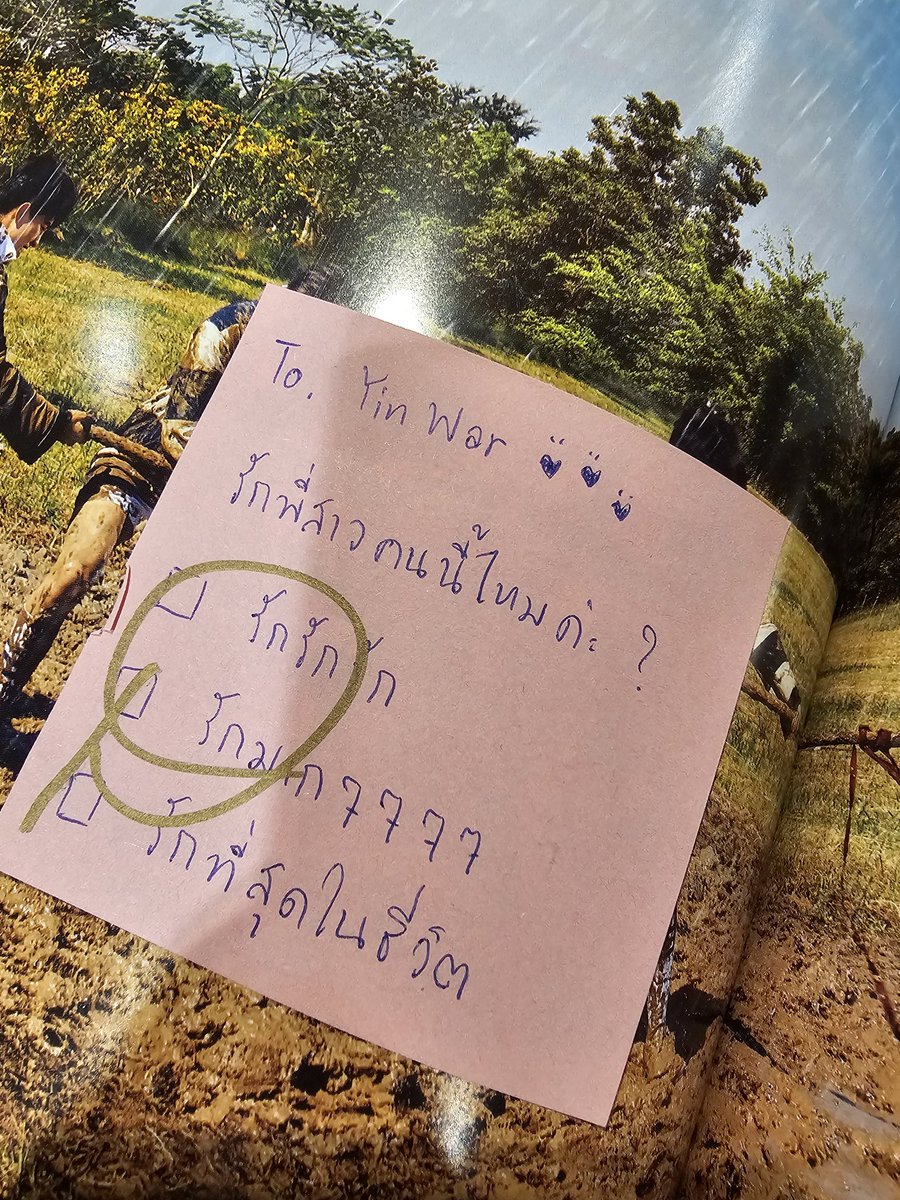 To. Yin War
รักพี่สาวคนนี้ไหมค่ะ ?
รักรักรัก
รักมาก7777
รักที่สุดในชีวิต